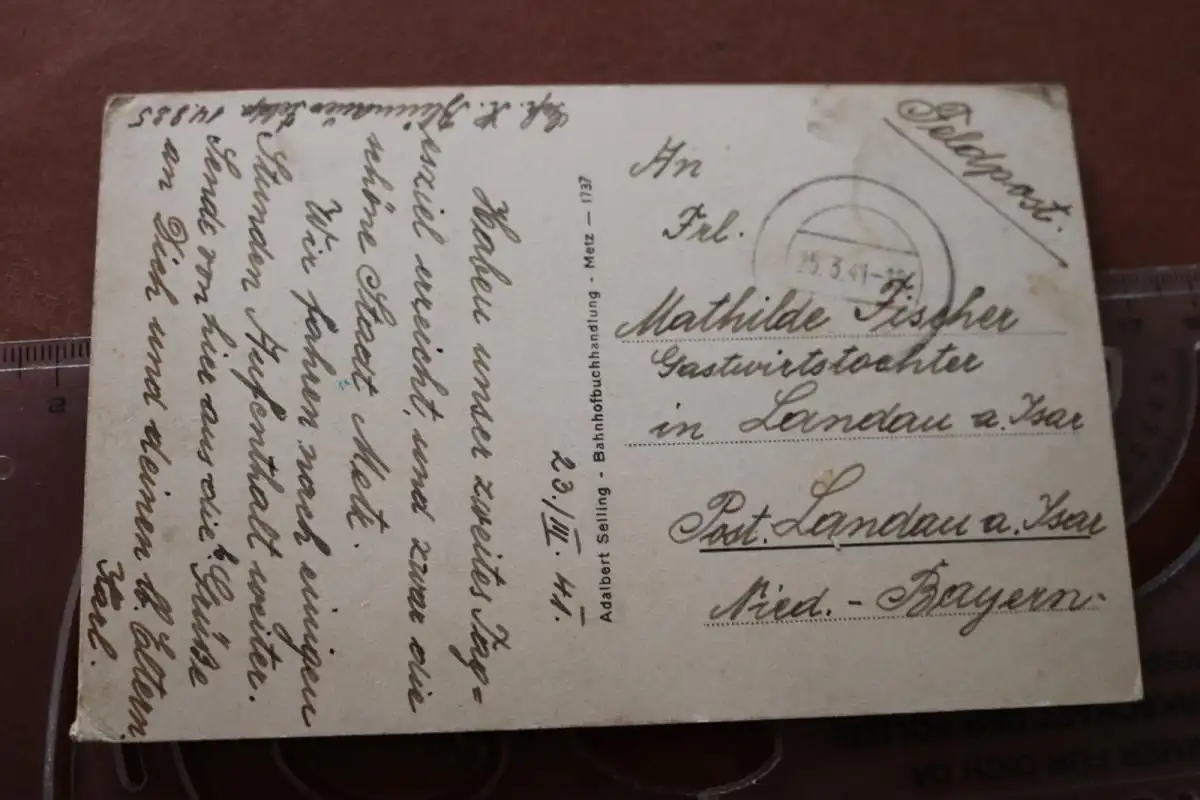 Feldpost.
25.3.41
An
Frl.
Mathilde Fischer
Gastwirtstochter
in Landau a. Isar
Post. Landau a. Isar
Nied. - Bayern
Adalbert Selling - Bahnhofbuchhandlung - Metz — 1737
23./III. 41.
Haben unser zweites Tag=
ziel erreicht, und zwar die
schöne Stadt Metz.
Wir fahren nach einigen
Stunden Aufenthalt weiter.
Sende von hier aus die b. Grüße
an Dich und deinen lb. Eltern.
Karl.
Gefr. K. Feldp. 14835